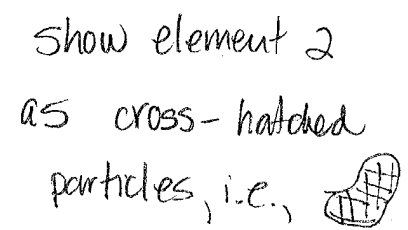 Show element 2
as cross-hatched
particles, i.e.,